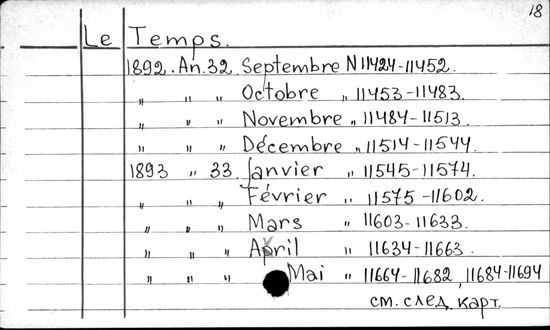 18
Le Temps.
1892. An. 32. Septembre N 11424-11452.
" " " Octobre " 11453-11483.
" " " Novembre " 11484-11513.
" " " Décembre " 11514-11544.
1893 " 33. Janvier " 11545-11574.
" " " Février " 11575-11602.
" " " Mars " 11603-11633.
" " " April " 11634-11663.
" " " Mai " 11664-11682, 11684-11694
см. след. карт.